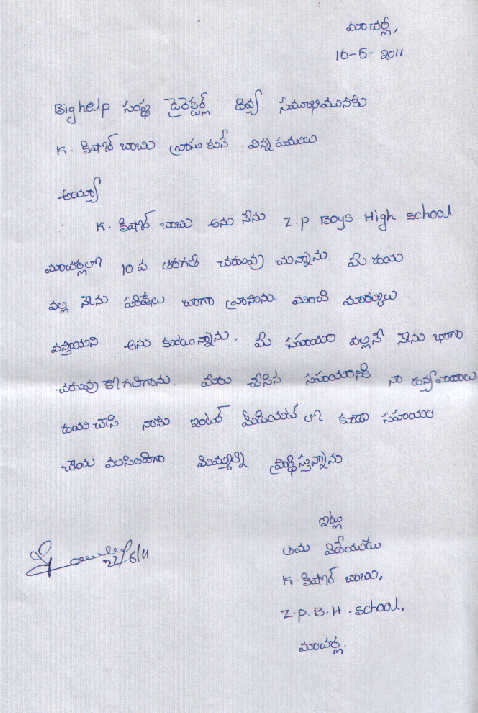 మాచర్ల,
10-6-2011
Bighelp సంస్థ డైరెక్టర్ల దివ్య సముఖమునకు
K. కిషోర్ బాబు వ్రాయునది విన్నపములు
అయ్యా
K. కిషోర్ బాబు అను నేను Z P Boys High school
మాచర్లలో 10 వ తరగతి చదువు చున్నాను మీ దయ
వల్ల నేను పరీక్షలు బాగా వ్రాశాను మంచి మార్కులు
వస్తాయని అను కుంటున్నాను. మీ సహాయం వల్లనే నేను బాగా
చదువు కోగలిగాను మీరు చేసిన సహాయానికి నా కృతజ్ఞతలు
దయచేసి నాకు ఇంటర్ మీడియట్ లో కూడా సహాయం
చేయ వలసిందిగా మిమ్మల్ని ప్రార్థిస్తున్నాను
ఇట్లు
తమ విధేయుడు
K కిషోర్ బాబు,
Z.P.B.H. School,
మాచర్ల.